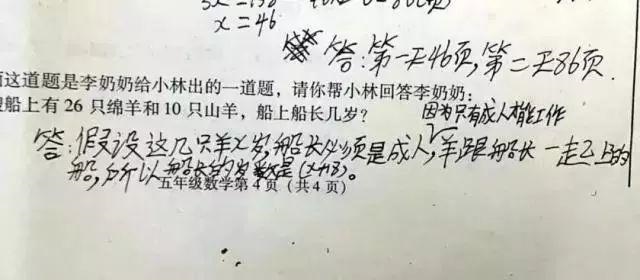 x=46
答:第一天46页,第二天86页.
这道题是李奶奶给小林出的一道题，请你帮小林回答李奶奶:
船上有 26 只绵羊和 10 只山羊，船上船长几岁?
因为只有成人才能工作
答:假设这几只羊x岁,船长必须是成人,羊跟船长一起上的
船,所以船长的岁数是(x+18)。
五年级数学第 4 页（共 4 页）